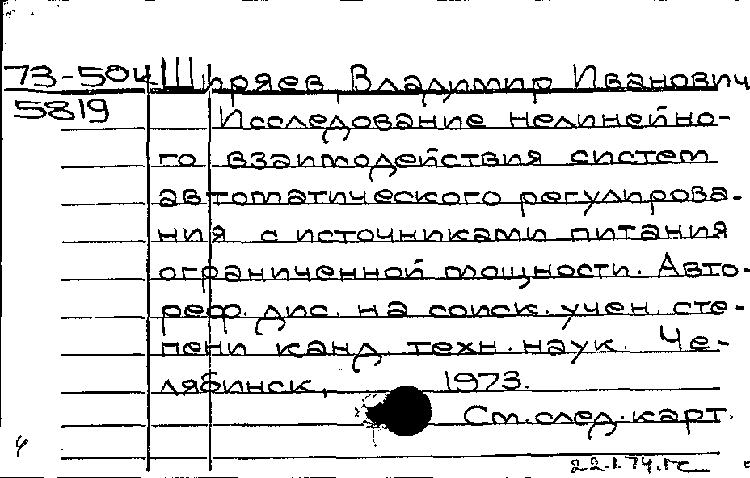 73-504 Ширяев, Владимир Иванович
5819 Исследование нелинейно-
го взаимодействия систем
автоматического регулирова-
ния с источниками питания
ограниченной мощности. Авто-
реф. дис. на соиск. учен. сте-
пени канд. техн. наук. Че-
лябинск, 1973.
См. след. карт.
22.1.74.гс